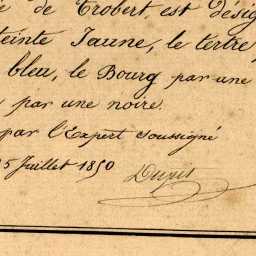 de Trobert, est désig
teinte Jaune, le tertre,
bleu, le Bourg par une
par une noire.
par l'Expert soussigné
5 Juillet 1850
Dupuis